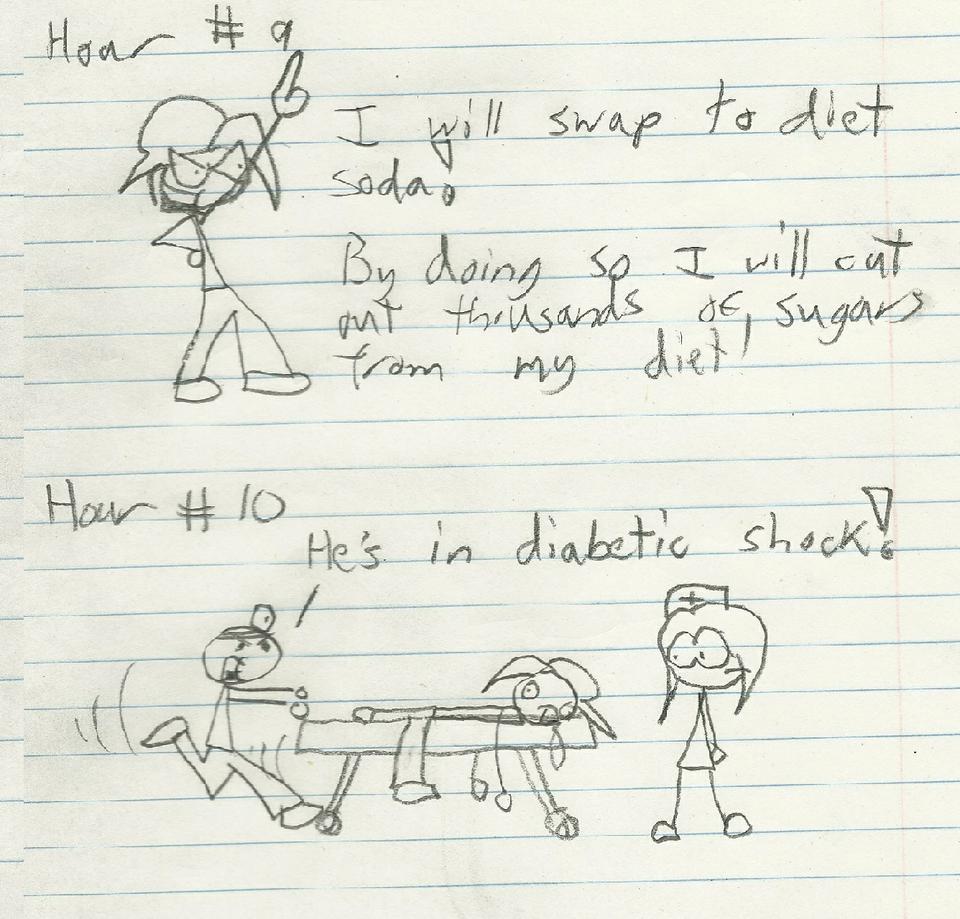 Hour # 9
I will swap to diet
soda.
By doing so I will cut
out thousands of sugars
from my diet!
Hour # 10
He's in diabetic shock!